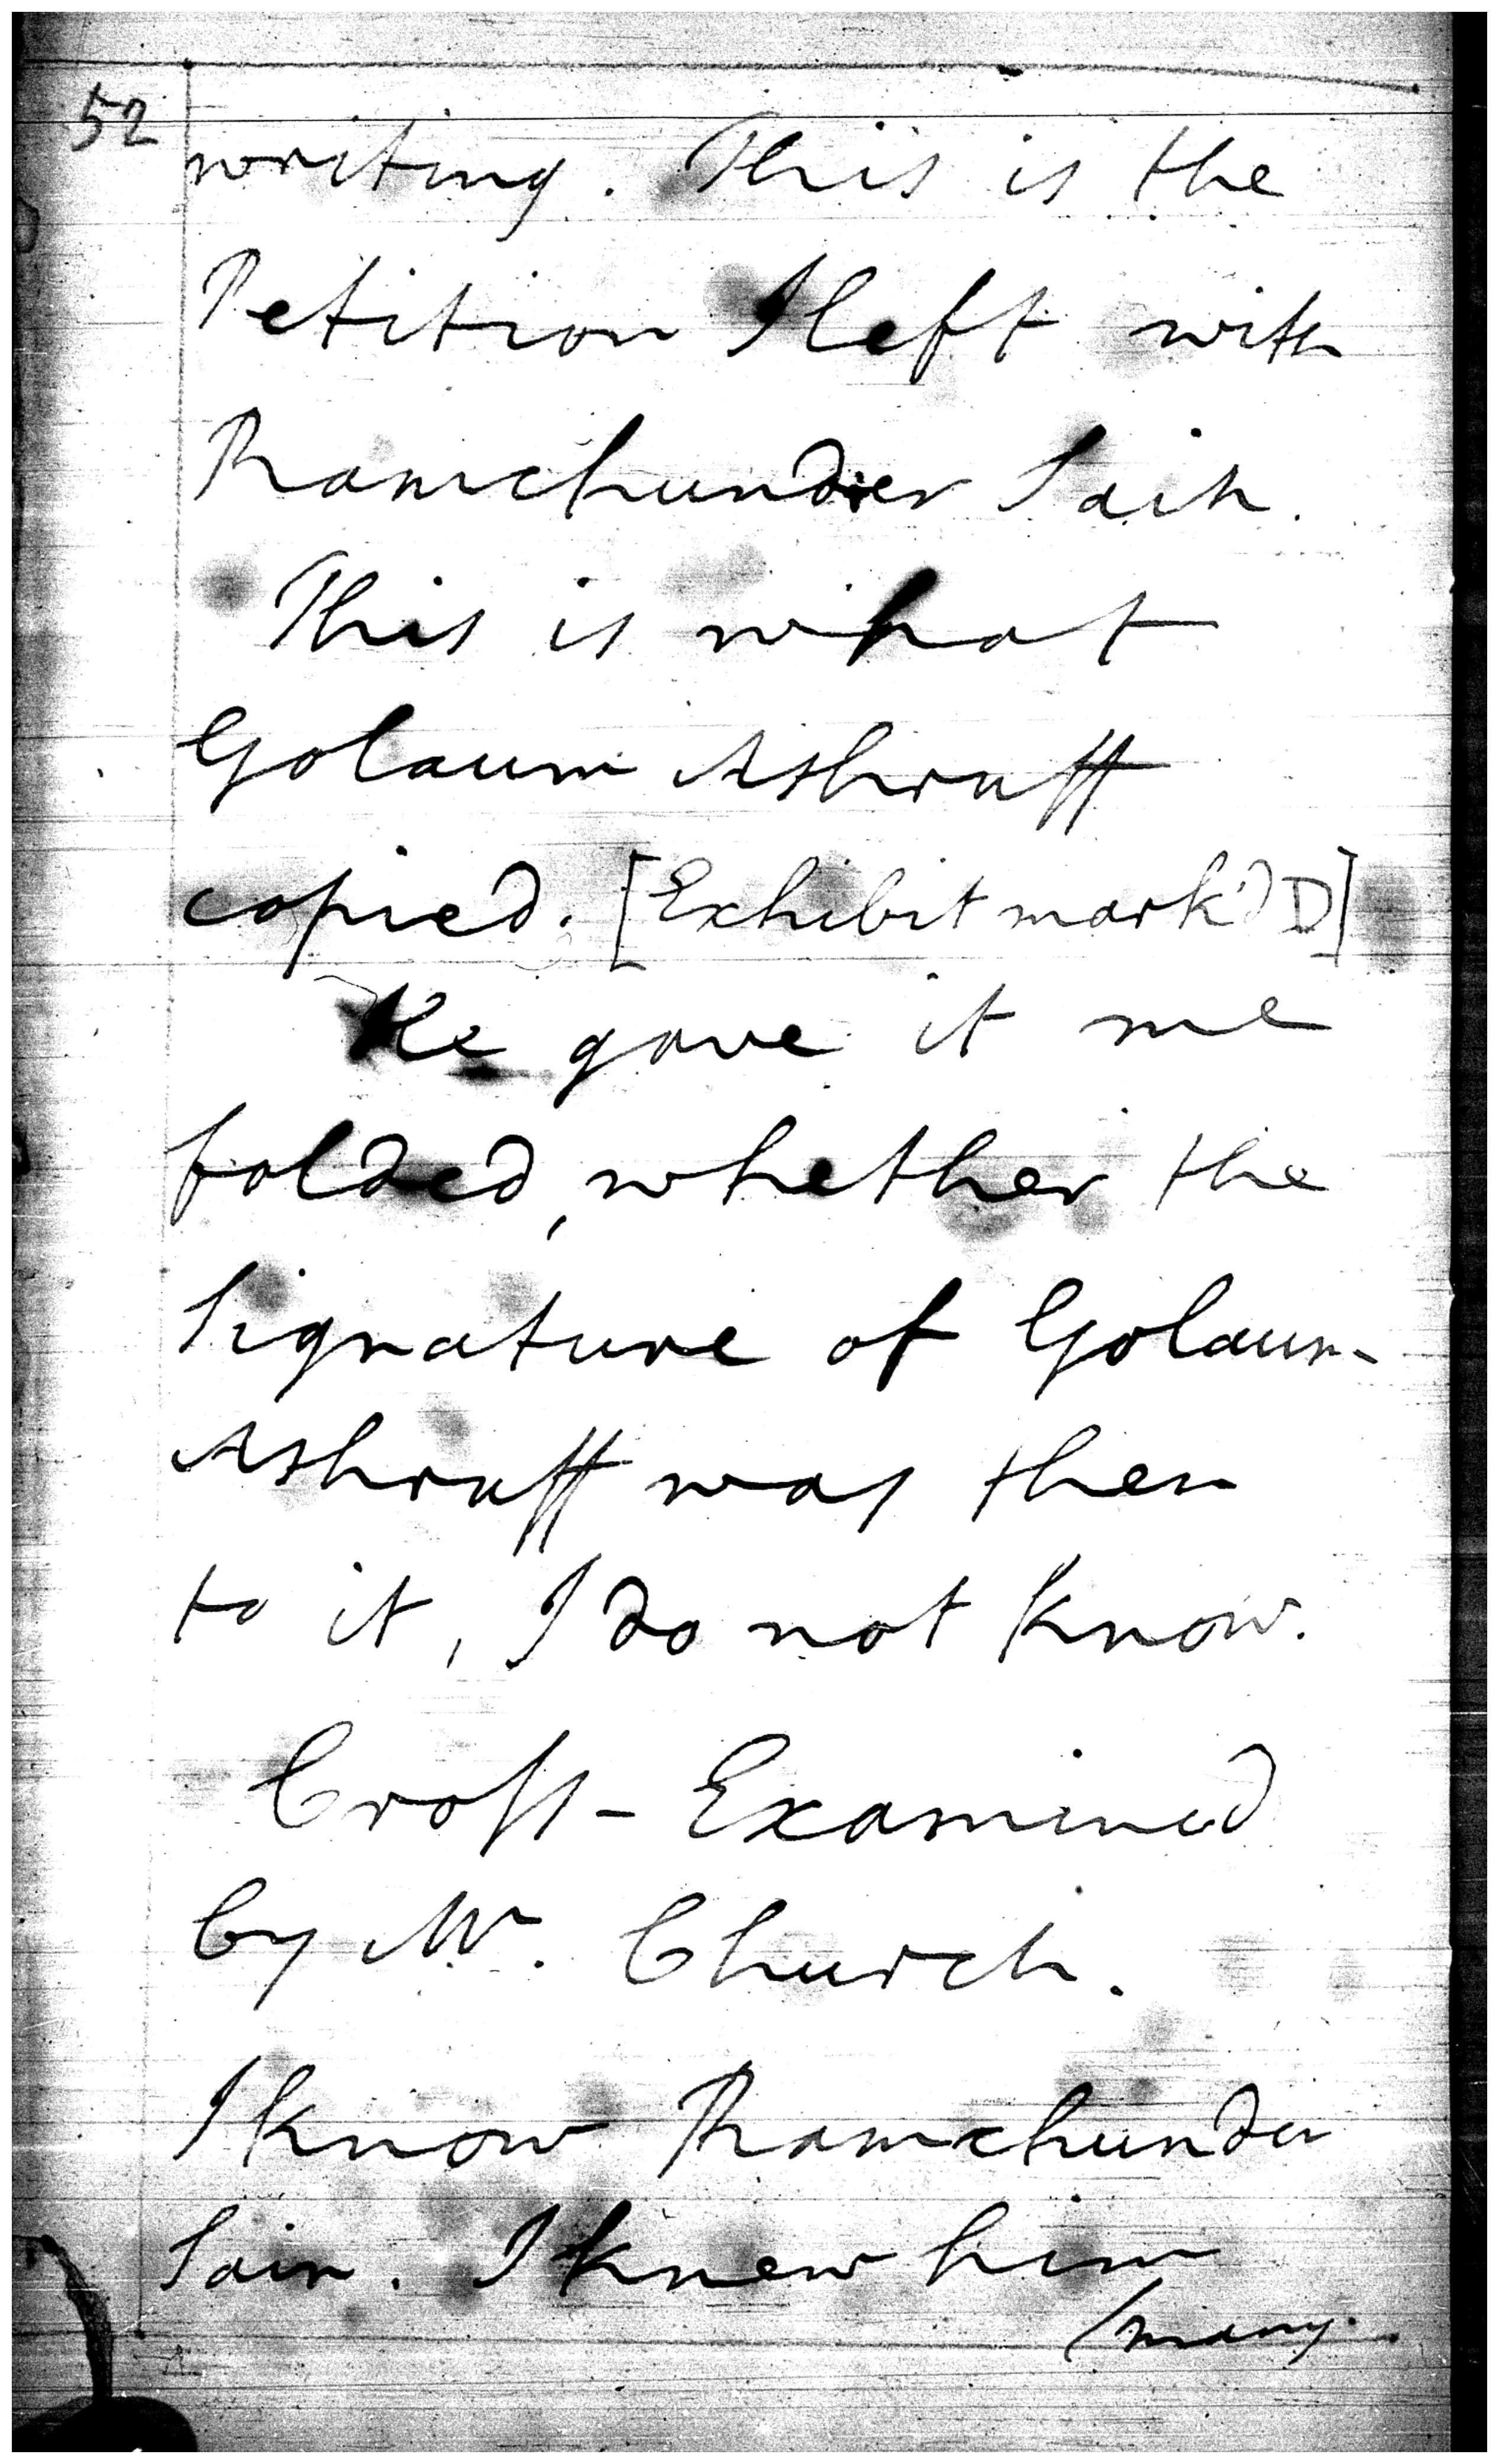 52
writing. This is the
Petition I left with
Ramchunder Sain.
This is what
Golaum Ashruff
copied. [Exhibit mark'd D]
He gave it me
folded, whether the
Signature of Golaum
Ashruff was then
to it, I do not know.
Cross-Examined
by Mr. Church.
I know Ramchunder
Sain. I knew him
/many